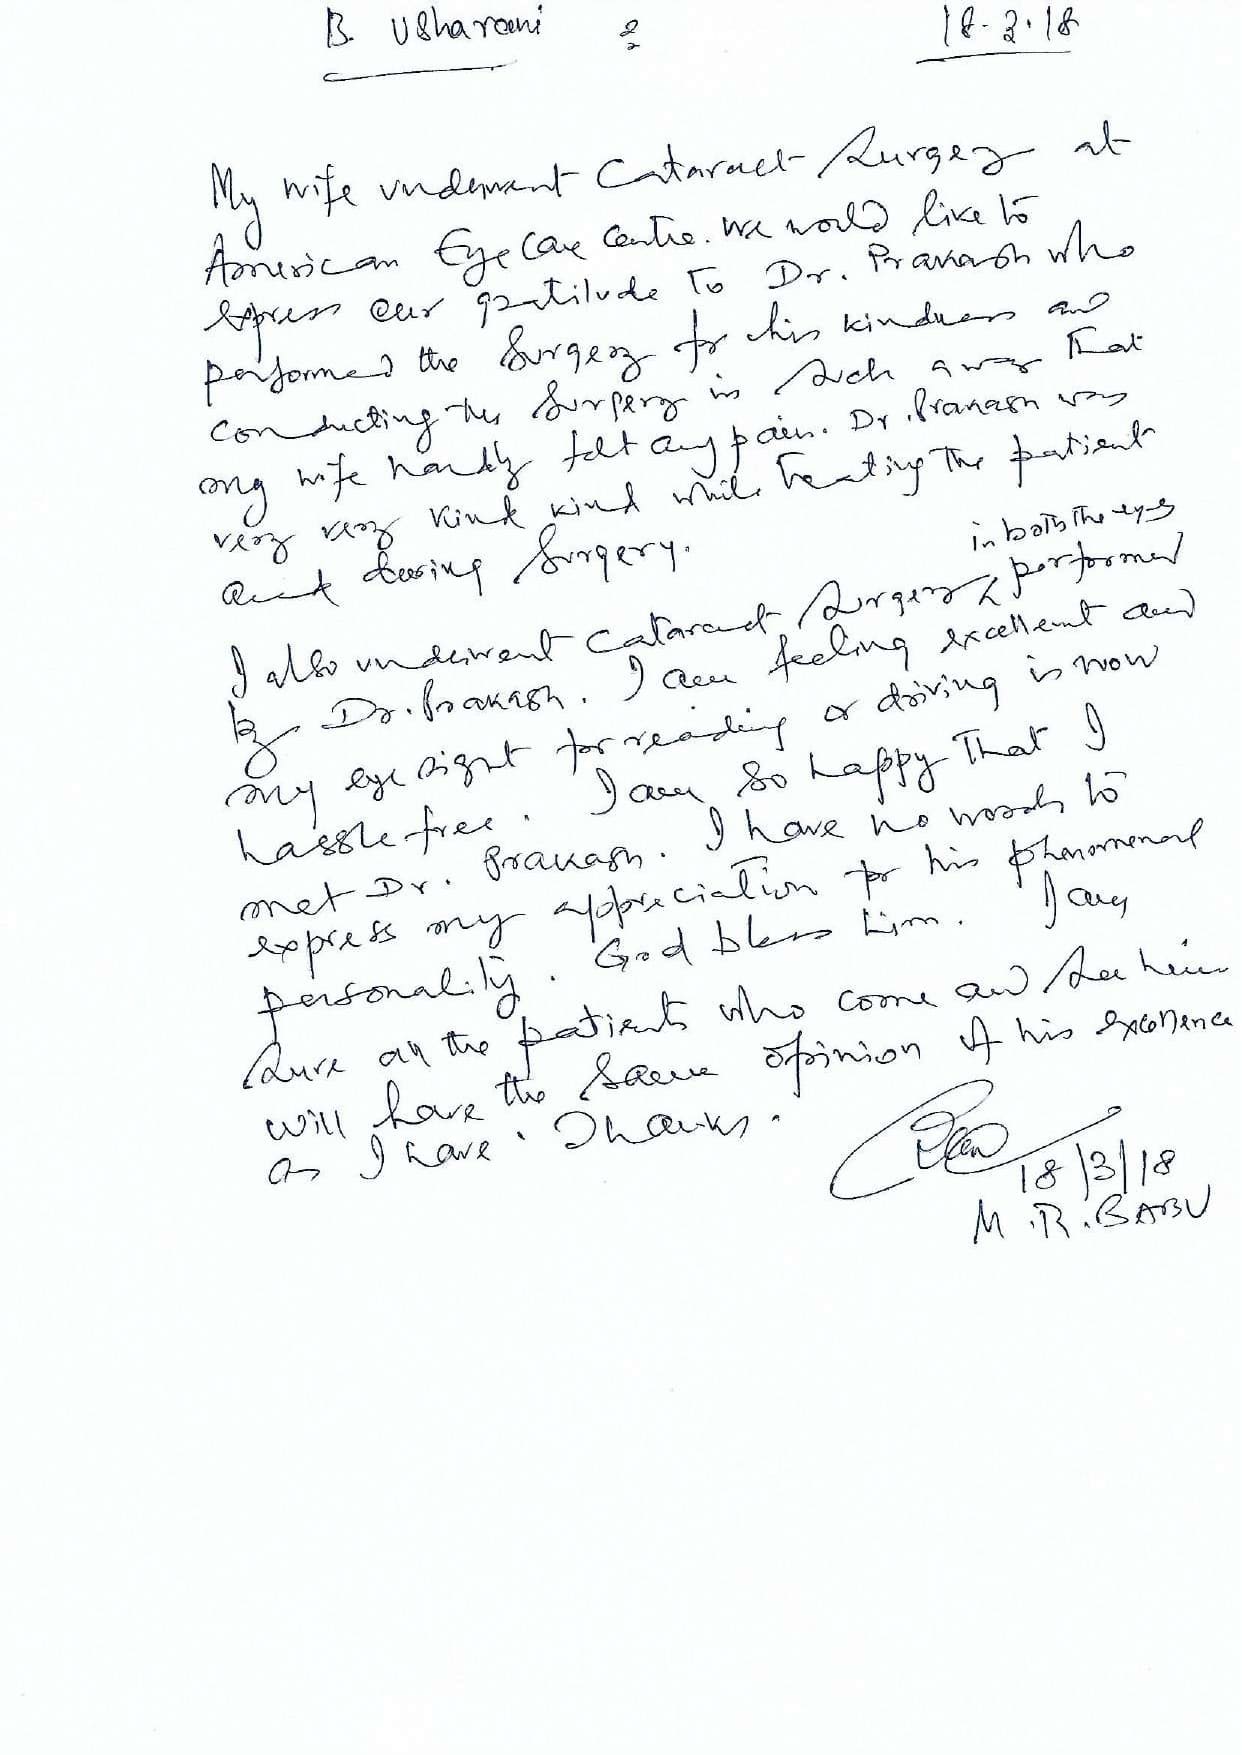 B. Usharani 18.3.18
My wife underwent Cataract Surgery at
American Eye Care Centre. We would like to
express our gratitude to Dr. Prakash who
performed the Surgery for his kindness and
conducting the Surgery in such a way that
my wife hardly felt any pain. Dr. Prakash was
very very kind kind while treating the patient
and during Surgery.
in both the eyes
I also underwent Cataract Surgery performed
by Dr. Prakash. I am feeling excellent and
my eye sight for reading or driving is now
hassle free. I am so happy that I
met Dr. Prakash. I have no words to
express my appreciation for his phenomenal
personality. God bless him. I am
sure all the patients who come and see him
will have the same opinion of his excellence
as I have. Thanks.
18/3/18
M.R. BABU